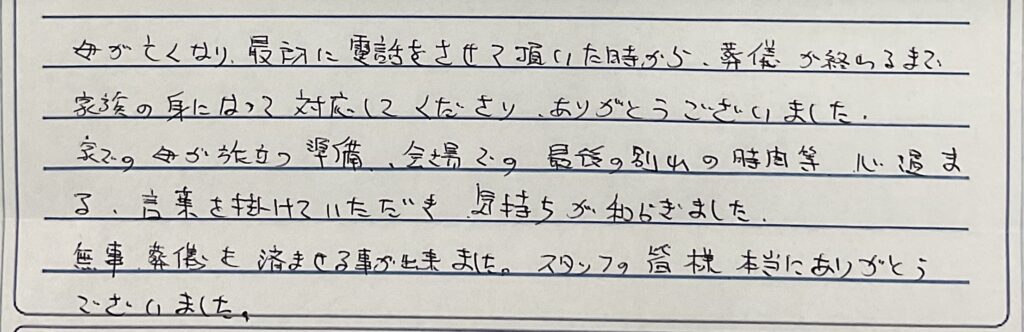 母が亡くなり、最初に電話をさせて頂いた時から、葬儀が終わるまで
家族の身になって対応してくださり、ありがとうございました。
家での母が旅立つ準備、会場での最後の別れの時間等 心温ま
る、言葉を掛けていただき 気持ちが和らぎました。
無事、葬儀を済ませる事が出来ました。スタッフの皆様本当にありがとう
ございました。